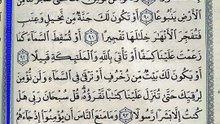 ٱلْأَرْضِ يَنۢبُوعًا ٩٠ أَوْ تَكُونَ لَكَ جَنَّةٌ مِّن نَّخِيلٍ وَعِنَبٍ
فَتُفَجِّرَ ٱلْأَنْهَٰرَ خِلَٰلَهَا تَفْجِيرًا ٩١ أَوْ تُسْقِطَ ٱلسَّمَآءَ كَمَا
زَعَمْتَ عَلَيْنَا كِسَفًا أَوْ تَأْتِىَ بِٱللَّهِ وَٱلْمَلَٰٓئِكَةِ قَبِيلًا ٩٢
أَوْ يَكُونَ لَكَ بَيْتٌ مِّن زُخْرُفٍ أَوْ تَرْقَىٰ فِى ٱلسَّمَآءِ وَلَن نُّؤْمِنَ
لِرُقِيِّكَ حَتَّىٰ تُنَزِّلَ عَلَيْنَا كِتَٰبًا نَّقْرَؤُهُۥ قُلْ سُبْحَانَ رَبِّى هَلْ
كُنتُ إِلَّا بَشَرًا رَّسُولًا ٩٣ وَمَا مَنَعَ ٱلنَّاسَ أَن يُؤْمِنُوٓا۟ إِذْ جَآءَهُمُ